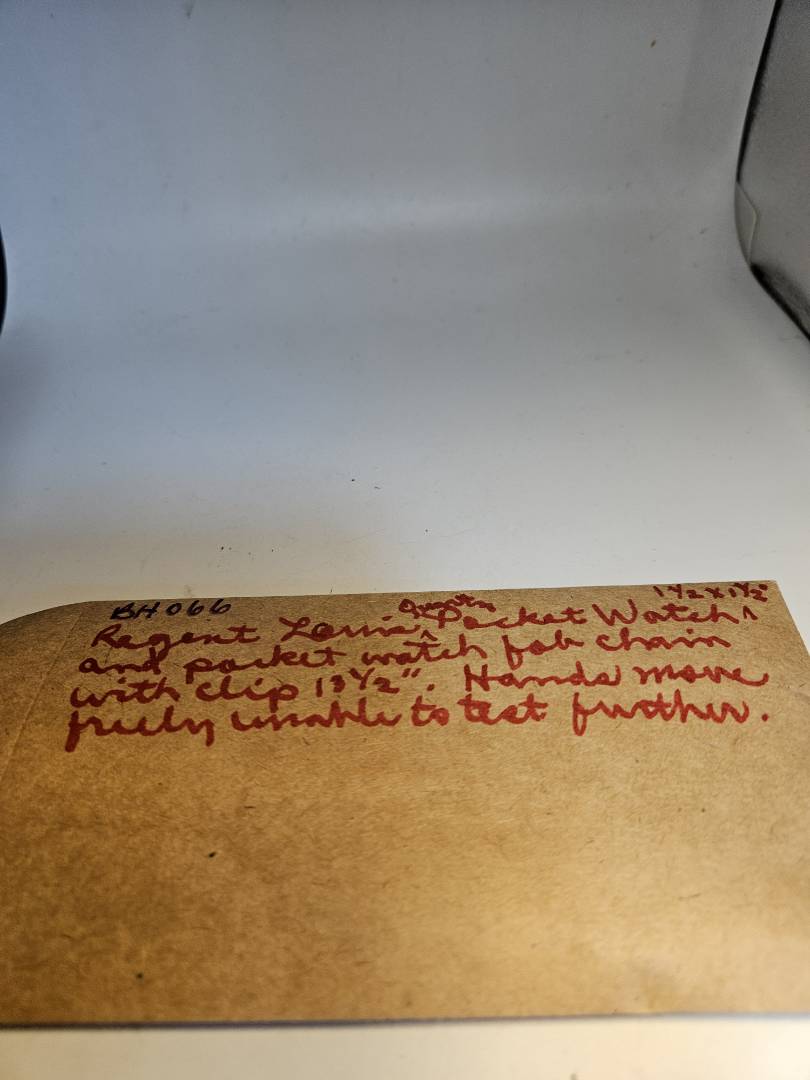 BH066
Quartz 1 1/2 x 1 1/2"
Regent Louis ^ Pocket Watch ^
and pocket watch fob chain
with clip 13 1/2". Hands move
freely unable to test further.